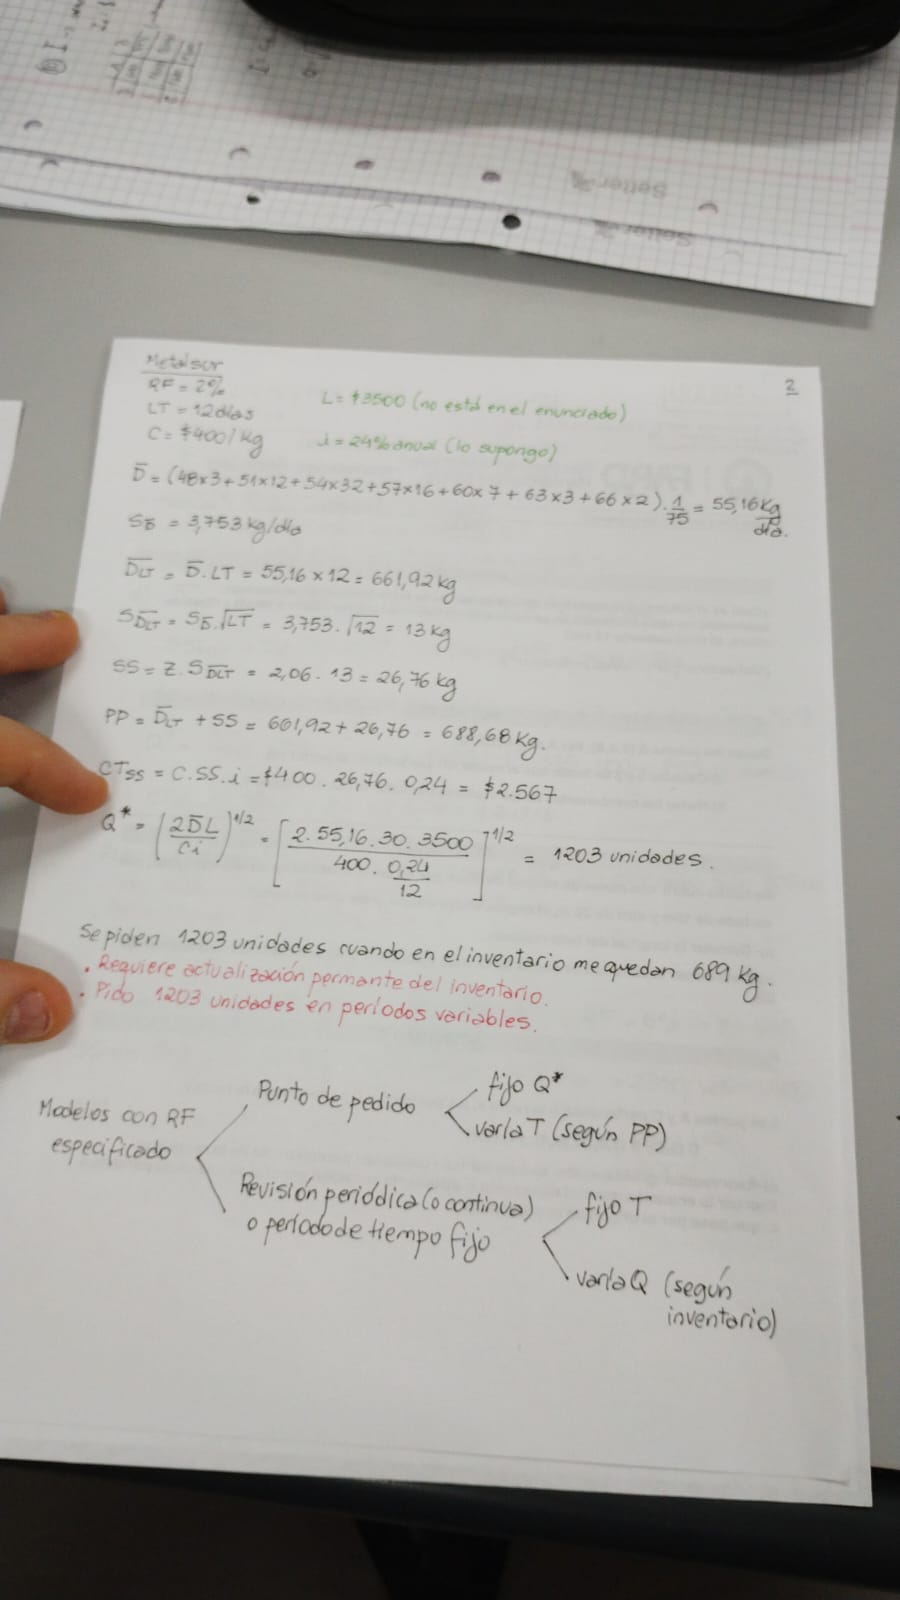 Metalsur
2
RF = 2%
L = $3500 (no está en el enunciado)
LT = 12 días
C = $400/kg
i = 24% anual (lo supongo)
D̄ = (48x3+51x12+54x32+57x16+60x7+63x3+66x2).1/75 = 55,16 kg/día.
SD̄ = 3,753 kg/día
D̄LT = D̄.LT = 55,16 x 12 = 661,92 kg
SD̄LT = SD̄.√LT = 3,753.√12 = 13 kg
SS = Z.SD̄LT = 2,06 . 13 = 26,76 kg
PP = D̄LT + SS = 661,92 + 26,76 = 688,68 kg.
CTSS = C.SS.i = $400 . 26,76. 0,24 = $2.567
Q* = (2D̄L/Ci)^1/2 = [2. 55,16. 30. 3500/400. 0,24/12]^1/2 = 1203 unidades.
Se piden 1203 unidades cuando en el inventario me quedan 689 kg.
. Requiere actualización permante del inventario.
. Pido 1203 unidades en períodos variables.
Modelos con RF
especificado
Punto de pedido
fijo Q*
varía T (según PP)
Revisión periódica (o continua)
o período de tiempo fijo
fijo T
varía Q (según
inventario)